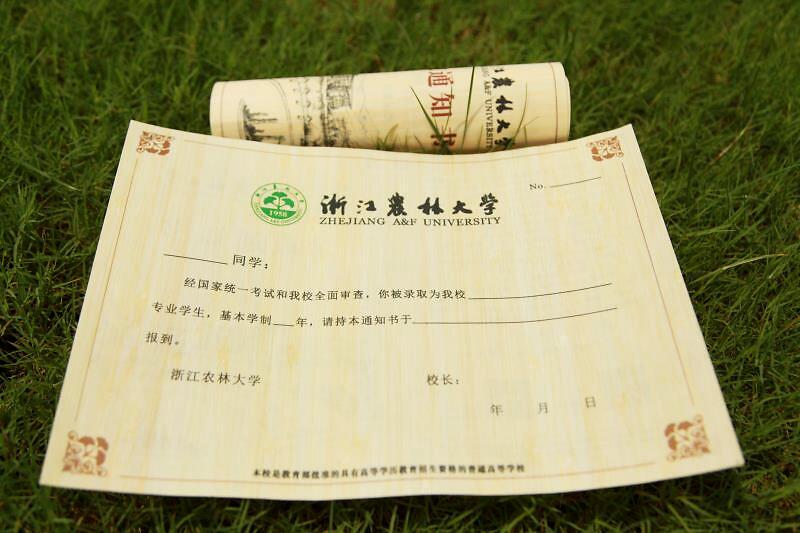 通知书
浙江农林大学
ZHEJIANG A&F UNIVERSITY
No.
1958
浙江農林大学
ZHEJIANG A&F UNIVERSITY
同学：
经国家统一考试和我校全面审查，你被录取为我校
专业学生，基本学制 年，请持本通知书于
报到。
浙江农林大学 校长：
年 月 日
本校是教育部批准的具有高等学历教育招生资格的普通高等学校